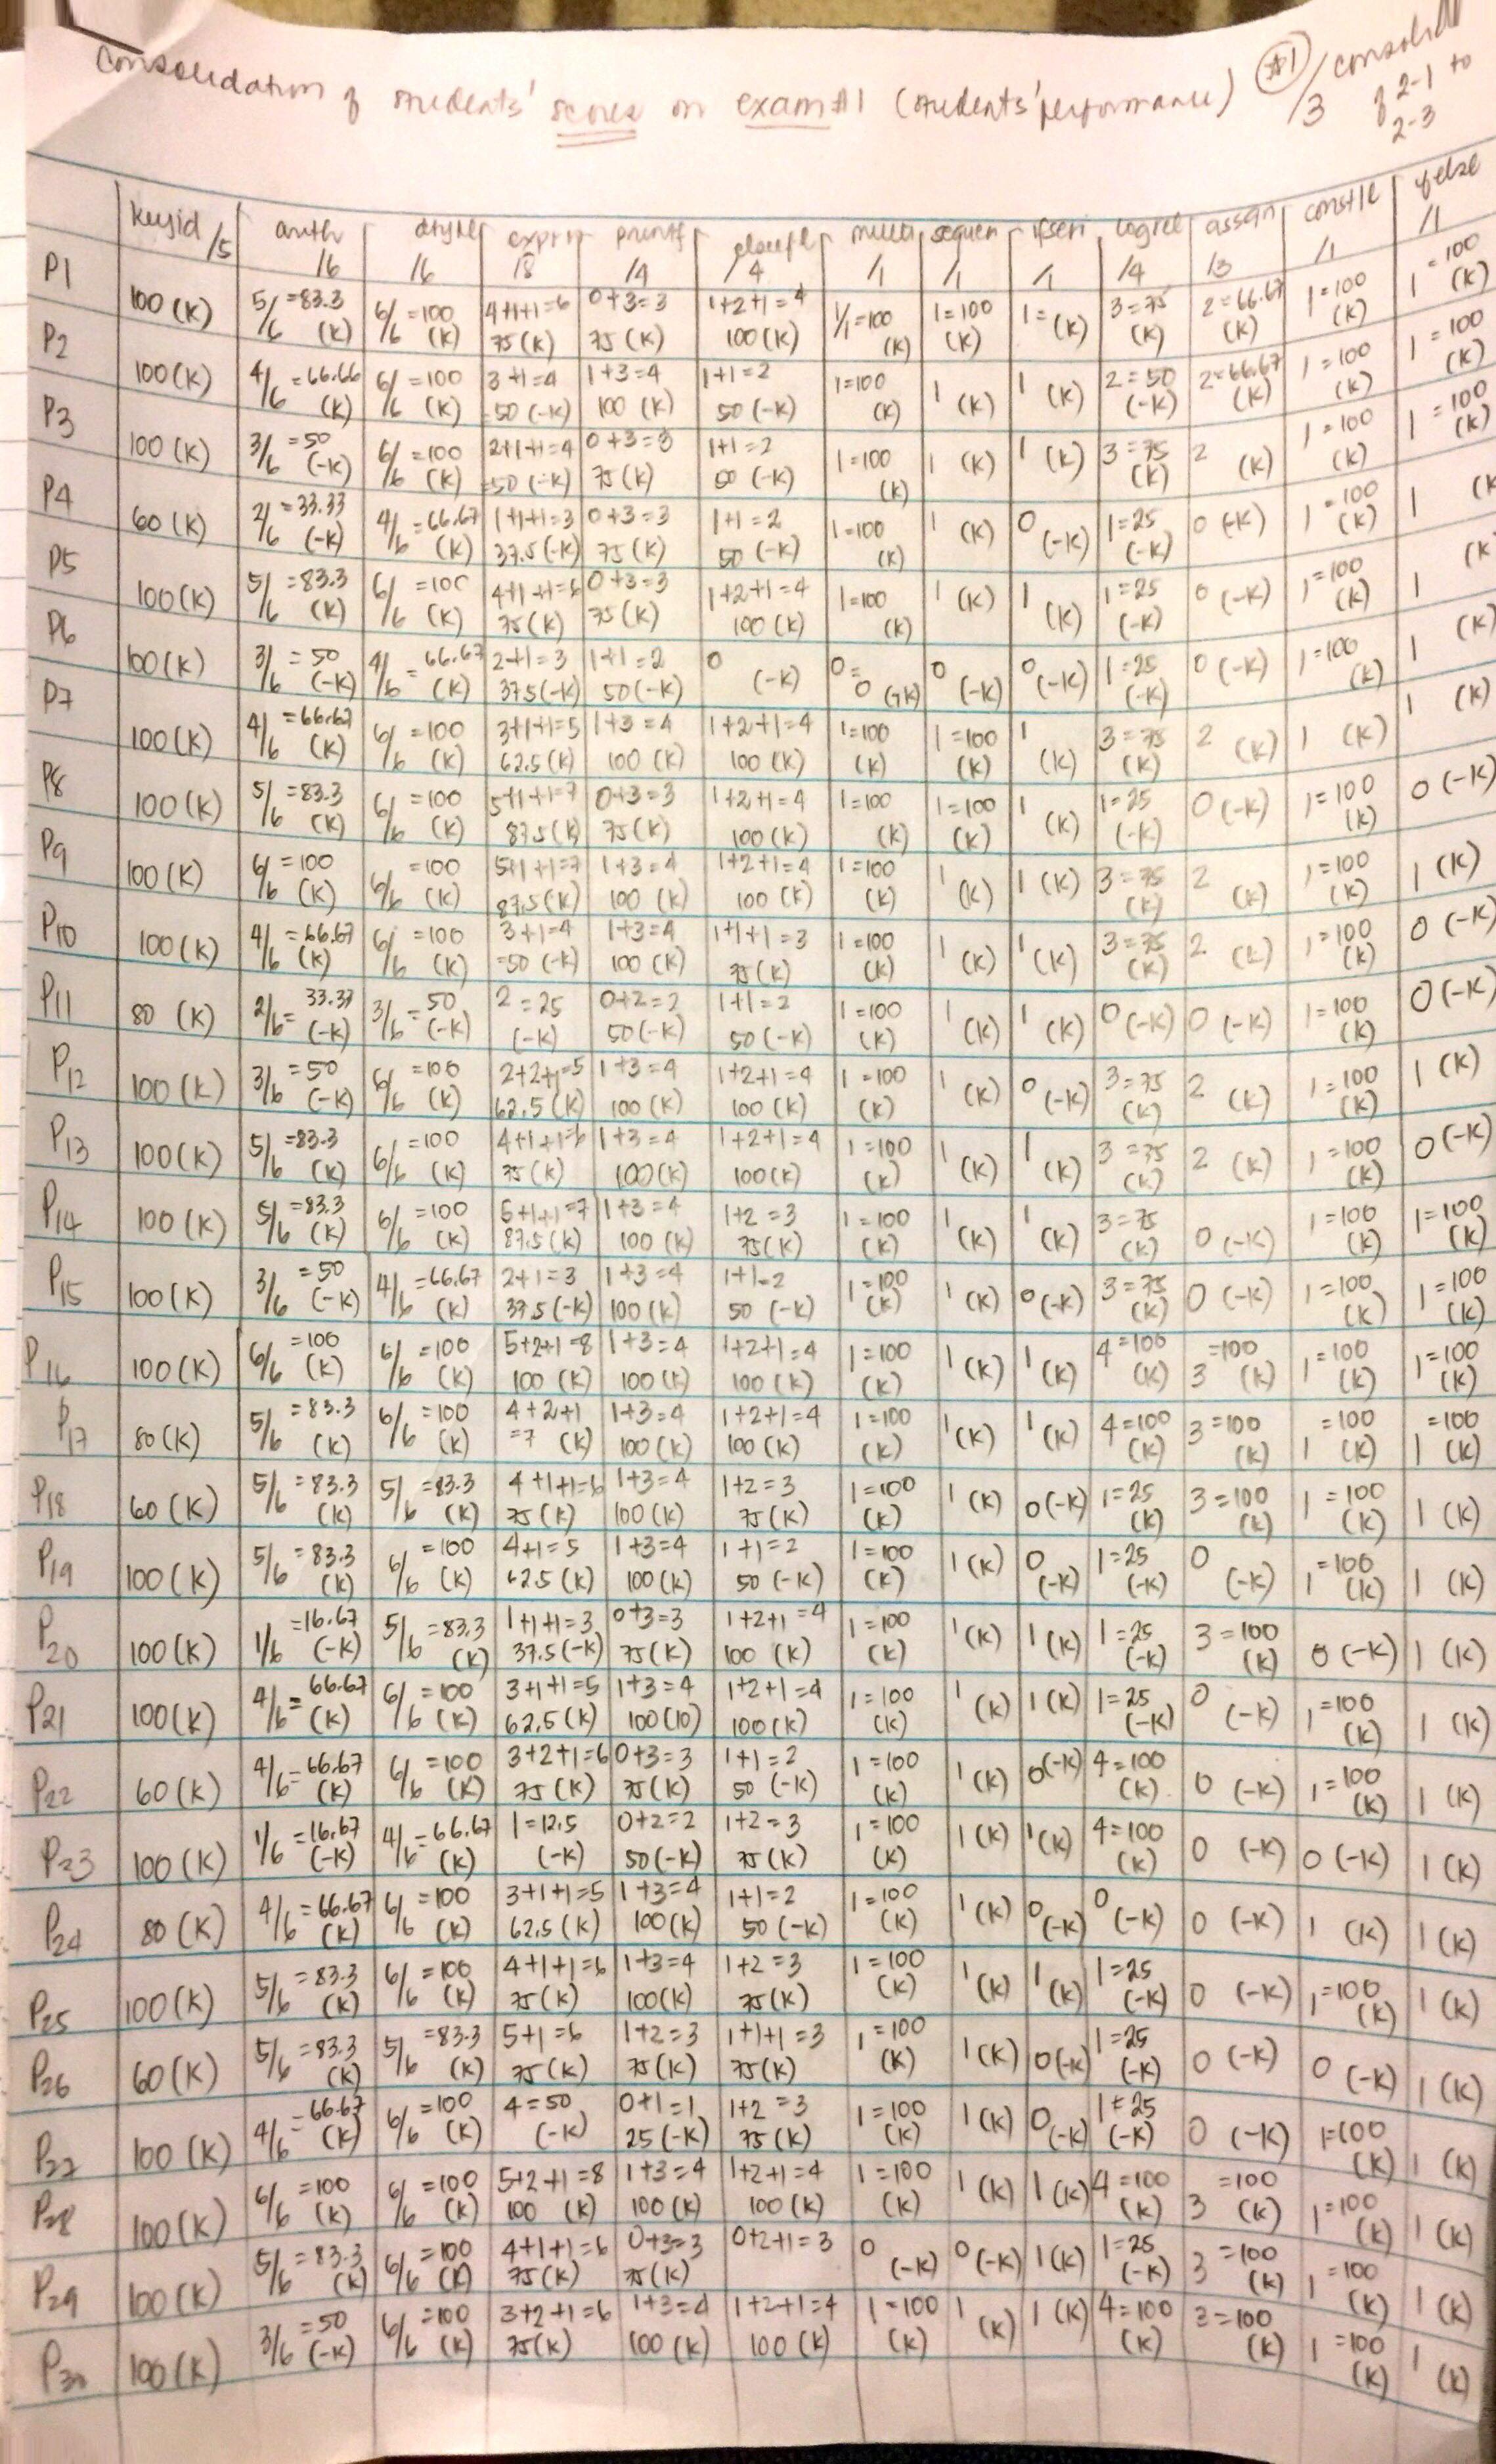 Consolidation of students' scores on exam #1 (students' performance) #1 / consolid
/3 of 2-1 to
2-3
keysid /5 arith /6 dtype /6 exprn /8 printf /4 elseif /4 multi /1 sequen /1 ifseri /1 logrel /4 assign /3 const /1 ifelse /1
P1 100 (K) 5/6 = 83.3 (K) 6/6 = 100 (K) 4+1+1=6 75 (K) 0+3=3 75 (K) 1+2+1=4 100 (K) 1/1=100 (K) 1=100 (K) 1= (K) 3=75 (K) 2=66.67 (K) 1=100 (K) 1=100 (K)
P2 100 (K) 4/6 = 66.66 (K) 6/6 = 100 (K) 3+1=4 50 (-K) 1+3=4 100 (K) 1+1=2 50 (-K) 1=100 (K) 1 (K) 1 (K) 2=50 (-K) 2=66.67 (K) 1=100 (K) 1=100 (K)
P3 100 (K) 3/6 = 50 (-K) 6/6 = 100 (K) 2+1+1=4 50 (-K) 0+3=3 75 (K) 1+1=2 50 (-K) 1=100 (K) 1 (K) 1 (K) 3=75 (K) 2 (K) 1=100 (K) 1=100 (K)
P4 60 (K) 2/6 = 33.33 (-K) 4/6 = 66.67 (K) 1+1+1=3 37.5 (-K) 0+3=3 75 (K) 1+1=2 50 (-K) 1=100 (K) 1 (K) 0 (-K) 1=25 (-K) 0 (-K) 1=100 (K) 1 (K
P5 100 (K) 5/6 = 83.3 (K) 6/6 = 100 (K) 4+1+1=6 75 (K) 0+3=3 75 (K) 1+2+1=4 100 (K) 1=100 (K) 1 (K) 1 (K) 1=25 (-K) 0 (-K) 1=100 (K) 1 (K
P6 100 (K) 3/6 = 50 (-K) 4/6 = 66.67 (K) 2+1=3 37.5 (-K) 1+1=2 50 (-K) 0 (-K) 0= 0 (-K) 0 (-K) 0 (-K) 1=25 (-K) 0 (-K) 1=100 (K) 1 (K)
P7 100 (K) 4/6 = 66.67 (K) 6/6 = 100 (K) 3+1+1=5 62.5 (K) 1+3=4 100 (K) 1+2+1=4 100 (K) 1=100 (K) 1=100 (K) 1 (K) 3=75 (K) 2 (K) 1 (K) 1 (K)
P8 100 (K) 5/6 = 83.3 (K) 6/6 = 100 (K) 5+1+1=7 87.5 (K) 0+3=3 75 (K) 1+2+1=4 100 (K) 1=100 (K) 1=100 (K) 1 (K) 1=25 (-K) 0 (-K) 1=100 (K) 0 (-K)
P9 100 (K) 6/6 = 100 (K) 6/6 = 100 (K) 5+1+1=7 87.5 (K) 1+3=4 100 (K) 1+2+1=4 100 (K) 1=100 (K) 1 (K) 1 (K) 3=75 (K) 2 (K) 1=100 (K) 1 (K)
P10 100 (K) 4/6 = 66.67 (K) 6/6 = 100 (K) 3+1=4 =50 (-K) 1+3=4 100 (K) 1+1+1=3 75 (K) 1=100 (K) 1 (K) 1 (K) 3=75 (K) 2 (K) 1=100 (K) 0 (-K)
P11 80 (K) 2/6 = 33.33 (-K) 3/6 = 50 (-K) 2=25 (-K) 0+2=2 50 (-K) 1+1=2 50 (-K) 1=100 (K) 1 (K) 1 (K) 0 (-K) 0 (-K) 1=100 (K) 0 (-K)
P12 100 (K) 3/6 = 50 (-K) 6/6 = 100 (K) 2+2+1=5 62.5 (K) 1+3=4 100 (K) 1+2+1=4 100 (K) 1=100 (K) 1 (K) 0 (-K) 3=75 (K) 2 (K) 1=100 (K) 1 (K)
P13 100 (K) 5/6 = 83.3 (K) 6/6 = 100 (K) 4+1+1=6 75 (K) 1+3=4 100 (K) 1+2+1=4 100 (K) 1=100 (K) 1 (K) 1 (K) 3=75 (K) 2 (K) 1=100 (K) 0 (-K)
P14 100 (K) 5/6 = 83.3 (K) 6/6 = 100 (K) 5+1+1=7 87.5 (K) 1+3=4 100 (K) 1+2=3 75 (K) 1=100 (K) 1 (K) 1 (K) 3=75 (K) 0 (-K) 1=100 (K) 1=100 (K)
P15 100 (K) 3/6 = 50 (-K) 4/6 = 66.67 (K) 2+1=3 37.5 (-K) 1+3=4 100 (K) 1+1=2 50 (-K) 1=100 (K) 1 (K) 0 (-K) 3=75 (K) 0 (-K) 1=100 (K) 1=100 (K)
P16 100 (K) 6/6 = 100 (K) 6/6 = 100 (K) 5+2+1=8 100 (K) 1+3=4 100 (K) 1+2+1=4 100 (K) 1=100 (K) 1 (K) 1 (K) 4=100 (K) 3=100 (K) 1=100 (K) 1=100 (K)
P17 80 (K) 5/6 = 83.3 (K) 6/6 = 100 (K) 4+2+1 =7 (K) 1+3=4 100 (K) 1+2+1=4 100 (K) 1=100 (K) 1 (K) 1 (K) 4=100 (K) 3=100 (K) 1=100 (K) 1=100 (K)
P18 60 (K) 5/6 = 83.3 (K) 5/6 = 83.3 (K) 4+1+1=6 75 (K) 1+3=4 100 (K) 1+2=3 75 (K) 1=100 (K) 1 (K) 0 (-K) 1=25 (K) 3=100 (K) 1=100 (K) 1 (K)
P19 100 (K) 5/6 = 83.3 (K) 6/6 = 100 (K) 4+1=5 62.5 (K) 1+3=4 100 (K) 1+1=2 50 (-K) 1=100 (K) 1 (K) 0 (-K) 1=25 (-K) 0 (-K) 1=100 (K) 1 (K)
P20 100 (K) 1/6 = 16.67 (-K) 5/6 = 83.3 (K) 1+1+1=3 37.5 (-K) 0+3=3 75 (K) 1+2+1=4 100 (K) 1=100 (K) 1 (K) 1 (K) 1=25 (-K) 3=100 (K) 0 (-K) 1 (K)
P21 100 (K) 4/6 = 66.67 (K) 6/6 = 100 (K) 3+1+1=5 62.5 (K) 1+3=4 100 (10) 1+2+1=4 100 (K) 1=100 (K) 1 (K) 1 (K) 1=25 (-K) 0 (-K) 1=100 (K) 1 (K)
P22 60 (K) 4/6 = 66.67 (K) 6/6 = 100 (K) 3+2+1=6 75 (K) 0+3=3 75 (K) 1+1=2 50 (-K) 1=100 (K) 1 (K) 0 (-K) 4=100 (K) 0 (-K) 1=100 (K) 1 (K)
P23 100 (K) 1/6 = 16.67 (-K) 4/6 = 66.67 (K) 1=12.5 (-K) 0+2=2 50 (-K) 1+2=3 75 (K) 1=100 (K) 1 (K) 1 (K) 4=100 (K) 0 (-K) 0 (-K) 1 (K)
P24 80 (K) 4/6 = 66.67 (K) 6/6 = 100 (K) 3+1+1=5 62.5 (K) 1+3=4 100 (K) 1+1=2 50 (-K) 1=100 (K) 1 (K) 0 (-K) 0 (-K) 0 (-K) 1 (K) 1 (K)
P25 100 (K) 5/6 = 83.3 (K) 6/6 = 100 (K) 4+1+1=6 75 (K) 1+3=4 100 (K) 1+2=3 75 (K) 1=100 (K) 1 (K) 1 (K) 1=25 (-K) 0 (-K) 1=100 (K) 1 (K)
P26 60 (K) 5/6 = 83.3 (K) 5/6 = 83.3 (K) 5+1=6 75 (K) 1+2=3 75 (K) 1+1+1=3 75 (K) 1=100 (K) 1 (K) 0 (-K) 1=25 (-K) 0 (-K) 0 (-K) 1 (K)
P27 100 (K) 4/6 = 66.67 (K) 6/6 = 100 (K) 4=50 (-K) 0+1=1 25 (-K) 1+2=3 75 (K) 1=100 (K) 1 (K) 0 (-K) 1=25 (-K) 0 (-K) 1=100 (K) 1 (K)
P28 100 (K) 6/6 = 100 (K) 6/6 = 100 (K) 5+2+1=8 100 (K) 1+3=4 100 (K) 1+2+1=4 100 (K) 1=100 (K) 1 (K) 1 (K) 4=100 (K) 3=100 (K) 1=100 (K) 1 (K)
P29 100 (K) 5/6 = 83.3 (K) 6/6 = 100 (K) 4+1+1=6 75 (K) 0+3=3 75 (K) 0+2+1=3 0 (-K) 0 (-K) 1 (K) 1=25 (-K) 3=100 (K) 1=100 (K) 1 (K)
P30 100 (K) 3/6 = 50 (-K) 6/6 = 100 (K) 3+2+1=6 75 (K) 1+3=4 100 (K) 1+2+1=4 100 (K) 1=100 (K) 1 (K) 1 (K) 4=100 (K) 3=100 (K) 1=100 (K) 1 (K)